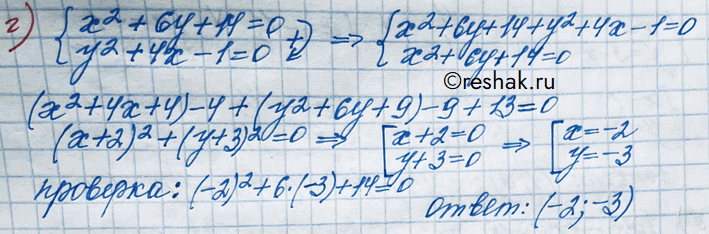 г) { x² + 6y + 14 = 0 y² + 4x - 1 = 0 +) ⇒ { x² + 6y + 14 + y² + 4x - 1 = 0 x² + 6y + 14 = 0
©reshak.ru
(x² + 4x + 4) - 4 + (y² + 6y + 9) - 9 + 13 = 0
(x + 2)² + (y + 3)² = 0 ⇒ [ x + 2 = 0 y + 3 = 0 ⇒ [ x = -2 y = -3
проверка: (-2)² + 6·(-3) + 14 = 0
ответ: (-2; -3)